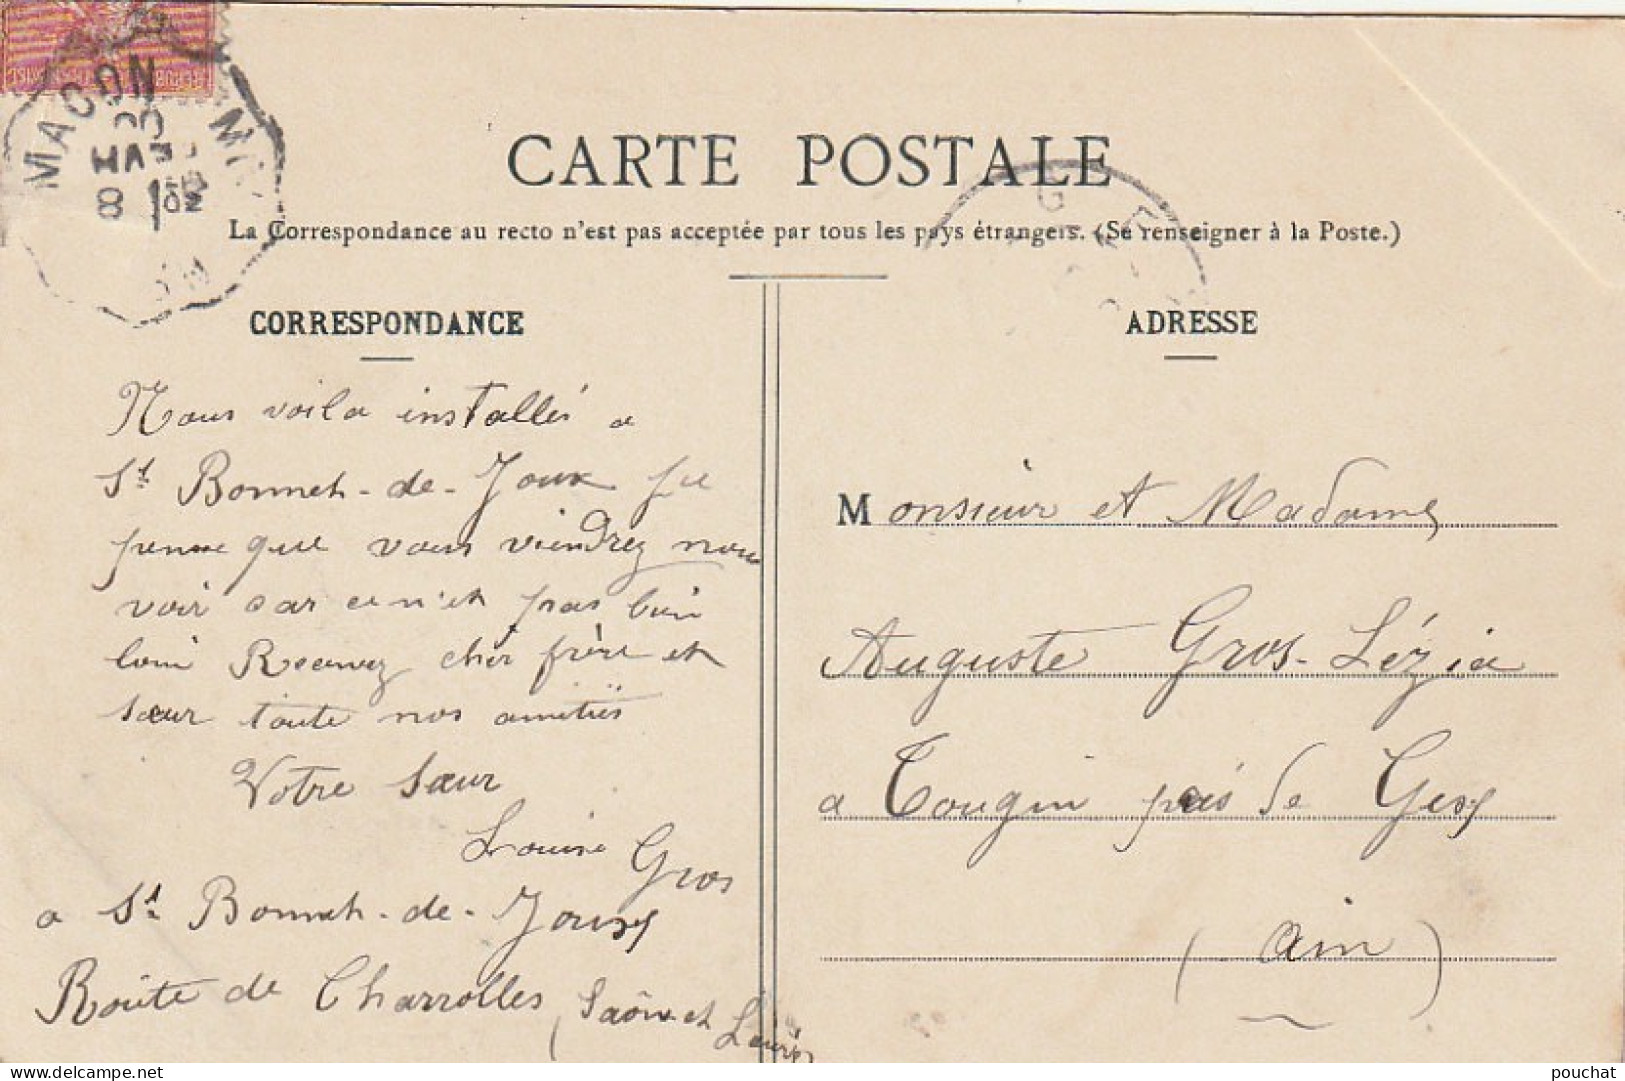 MACON
CARTE POSTALE
La Correspondance au recto n'est pas acceptée par tous les pays étrangers. (Se renseigner à la Poste.)
CORRESPONDANCE
Nous voila installés a
St Bonnet-de-Joux je
pense que vous viendrez nous
voir car ce n'et pas bien
loin Recevez cher frère et
sœur toute nos amitiés
Votre sœur
Louise Gros
a St Bonnet-de-Joux
Route de Charrolles
(Saône et Loire)
ADRESSE
Monsieur et Madame
Auguste Gros-Lézia
a Tougin prés de Gex
(Ain)
pouchat